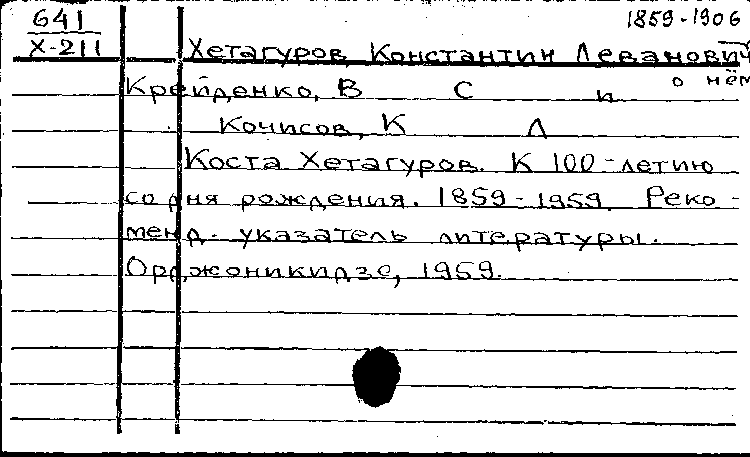 641 1859-1906
Х-211 Хетагуров, Константин Леванович
о нём
Крейденко, В С и
Кочисов, К Л
Коста Хетагуров. К 100-летию
со дня рождения. 1859-1959. Реко-
менд. указатель литературы.
Орджоникидзе, 1959.